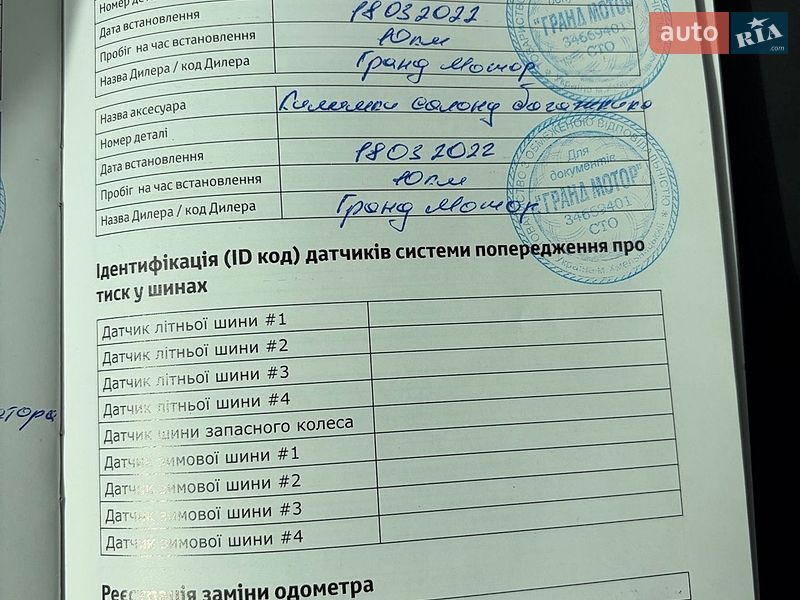 Номер деталі
Дата встановлення 18 03 2022
Пробіг на час встановлення 10 км
Назва Дилера / код Дилера Гранд Мотор
Назва аксесуара Килимки салону багажника
Номер деталі
Дата встановлення 18 03 2022
Пробіг на час встановлення 10 км
Назва Дилера / код Дилера Гранд Мотор
"ГРАНД МОТОР"
34669401
СТО
auto RIA .com
Для
документів
"ГРАНД МОТОР"
34669401
СТО
Ідентифікація (ID код) датчиків системи попередження про
тиск у шинах
Датчик літньої шини #1
Датчик літньої шини #2
Датчик літньої шини #3
Датчик літньої шини #4
Датчик шини запасного колеса
Датчик зимової шини #1
Датчик зимової шини #2
Датчик зимової шини #3
Датчик зимової шини #4
Реєстрація заміни одометра